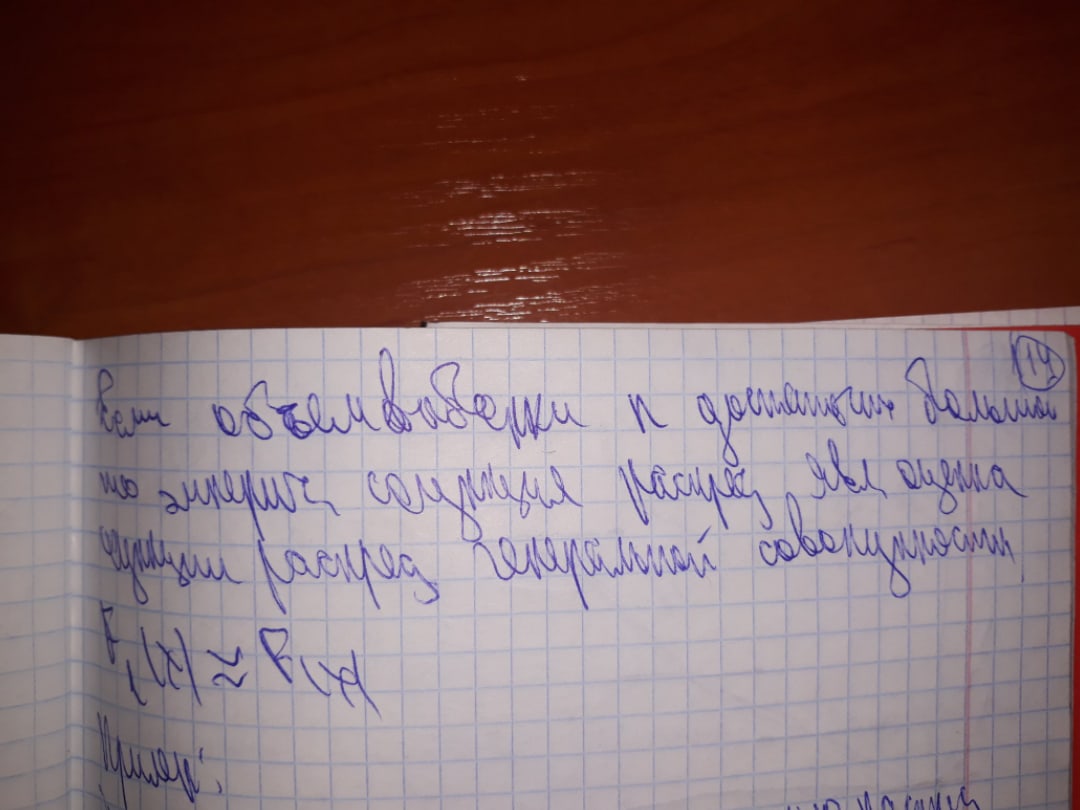 19
Если объем выборки n достаточн большой
то эмперич функция распред явл оценка
функции распред генеральной совокупности
(x) ≈ F(x)
Пример: